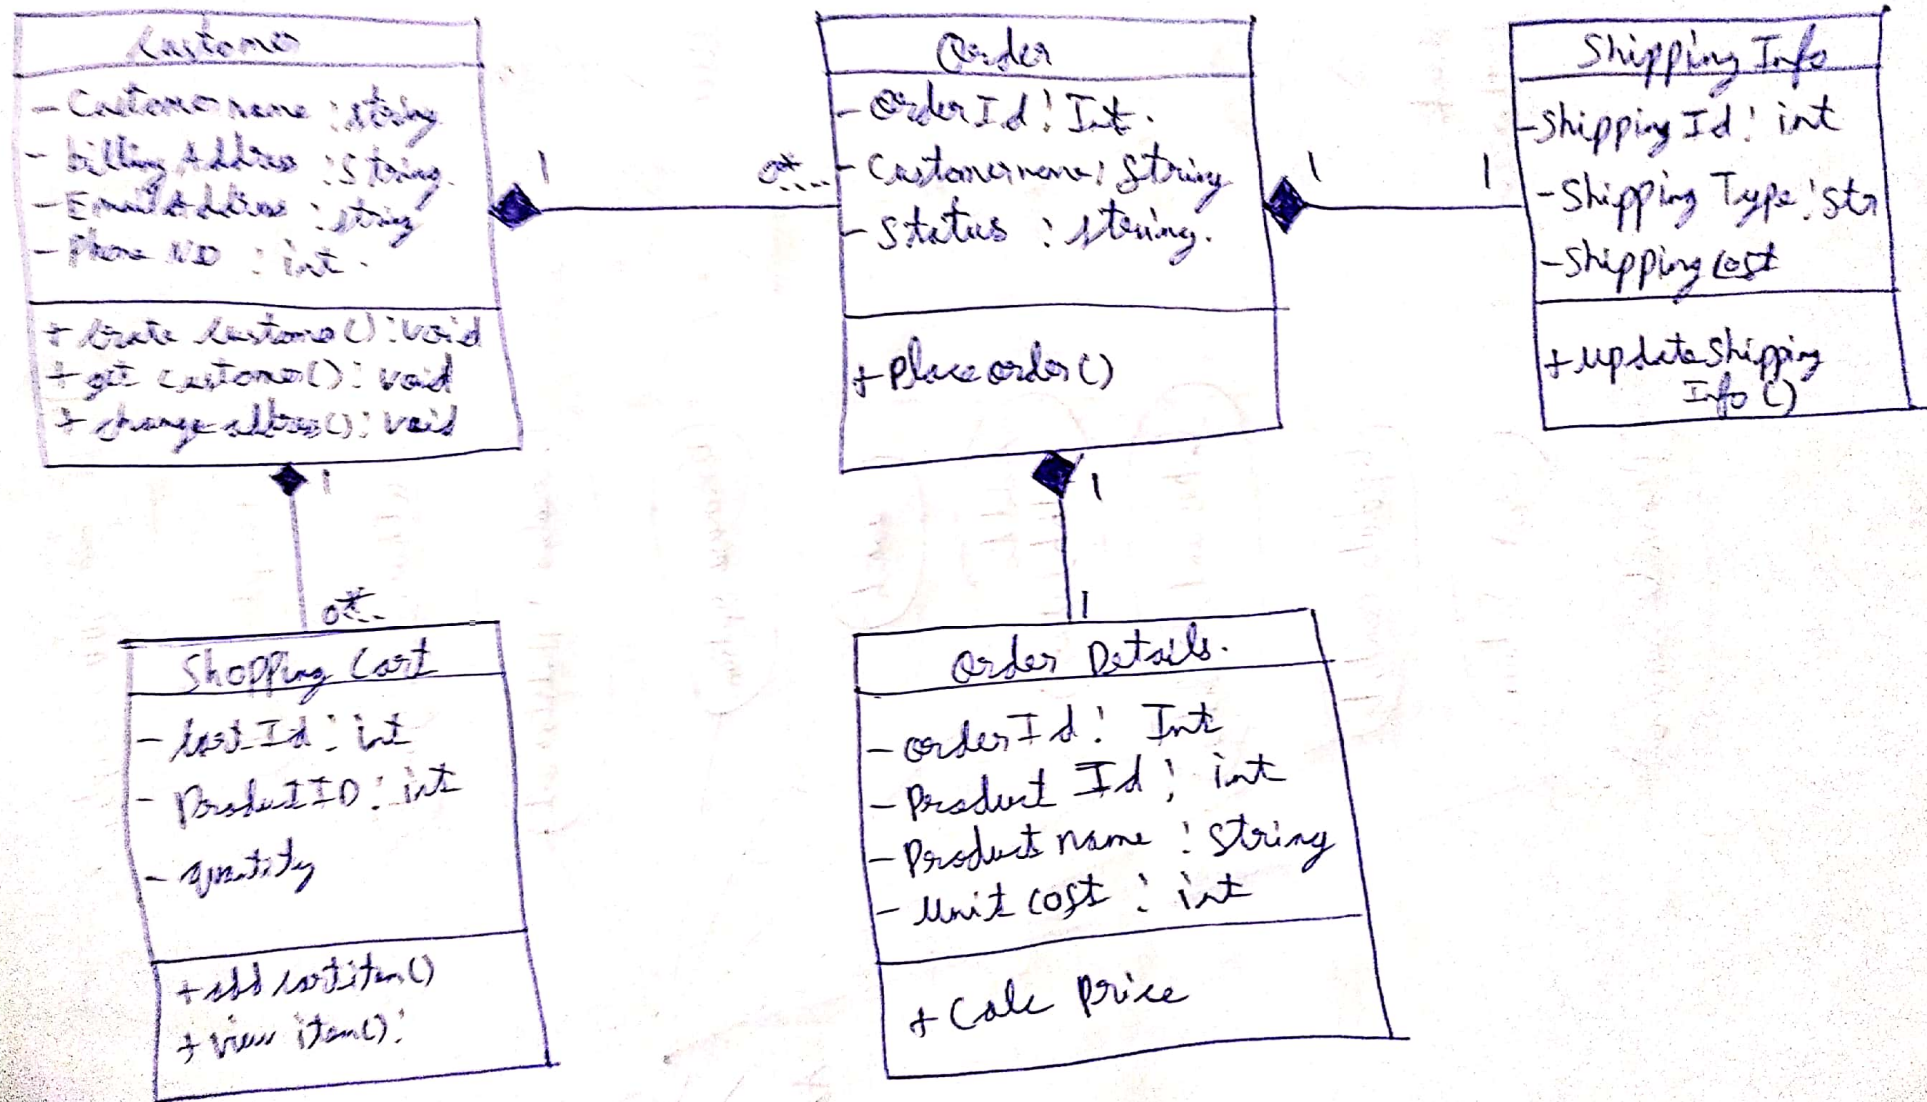 Customer
- Customername : string
- billing Address : String.
- Email Address : string
- Phone NO : int.
+ Create Customer() : void
+ get customer() : void
+ change address() : void
1
0*....
Order
- OrderId : Int.
- Customername : String
- Status : string.
+ Place order()
1
1
Shipping Info
- Shipping Id : int
- Shipping Type : Str
- Shipping Cost
+ update Shipping
Info()
1
0*..
Shopping Cart
- Cart Id : int
- Product ID : int
- quantity
+ add cartitem()
+ view item() :
1
1
Order Details.
- orderId : Int
- Product Id : int
- Product name : String
- Unit Cost : int
+ Calc Price